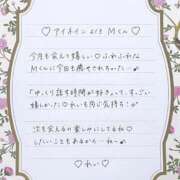 ♡ アイネイン より Mくん ♡
今月も会えて嬉しい♡ふわふわな
Mくんに今日も癒やされちゃった…
「ゆっくり話す時間が好き」って、すごい
嬉しかった♡れいも同じ気持ち♡
次も会えるの楽しみにしてるね♡
したいこともあるから…ねっ
♡ れい ♡